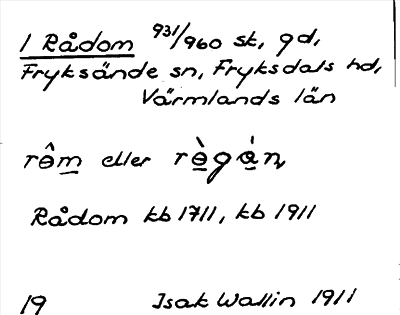 1 Rådom 931/960 sk, gd,
Fryksände sn, Fryksdals hd,
Värmlands län
rôm eller règán
Rådom kb 1711, kb 1911
19 Isak Wallin 1911